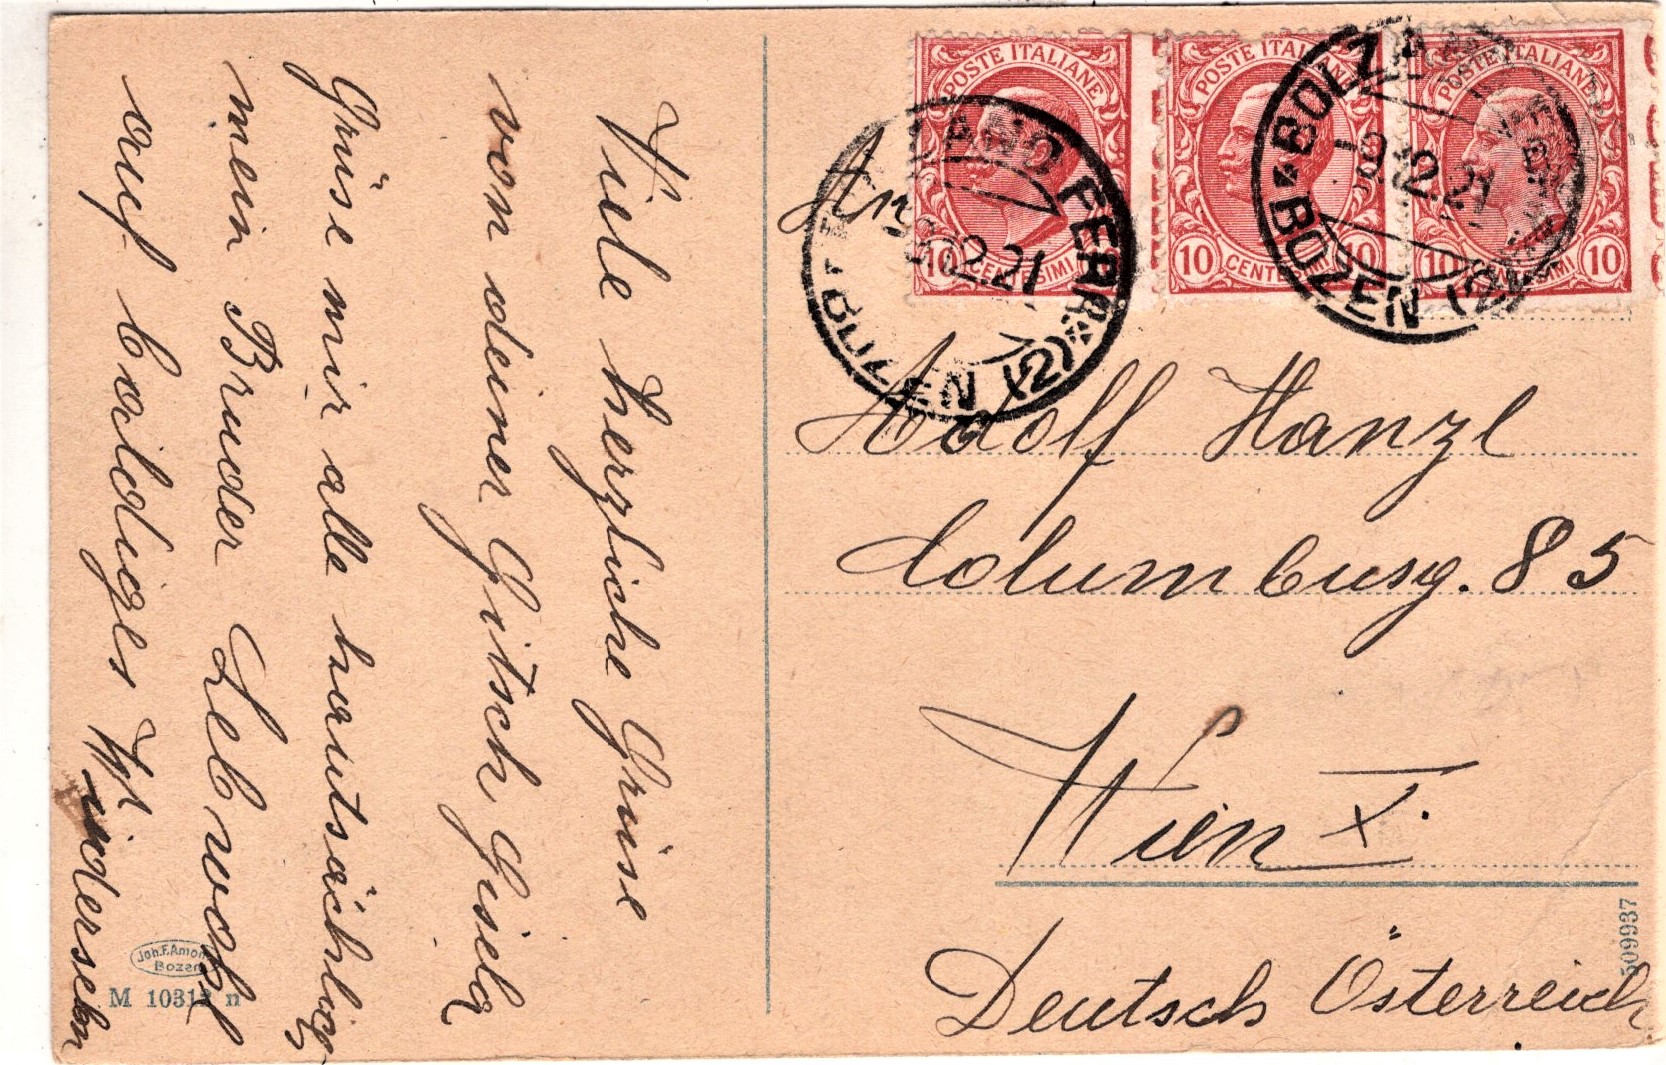 Viele herzliche Grüse
von deiner Gitsch Gisela
Grüse mir alle hautsächlig
mein Bruder Lebwohl
auf baldiges Wiedersehn
Joh. F. Amonn
Bozen
M 10313 n
POSTE ITALIANE
10 CENTESIMI
POSTE ITALIANE
10 CENTESIMI 10
POSTE ITALIANE
10 CENTESIMI 10
BOLZANO FERR
12.21
BOZEN (2)
BOLZANO
12.21
BOZEN (2)
An
Adolf Hanzl
Columbusg. 85
Wien X.
Deutsch Österreich
509937